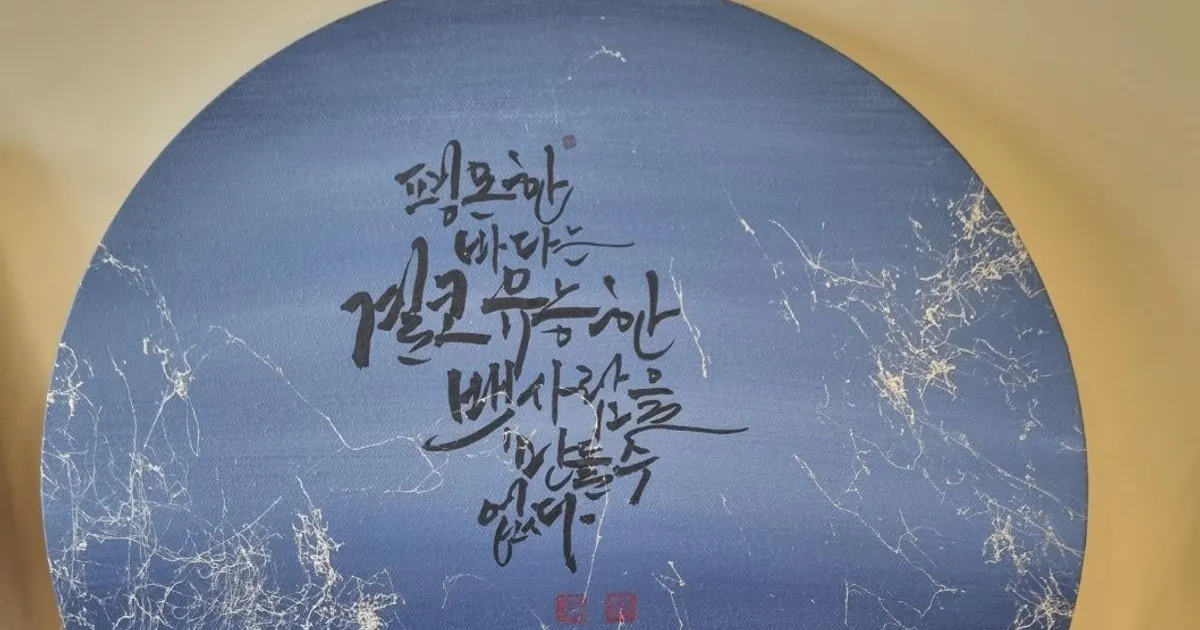 평온한
바다는
결코 유능한
뱃사람을
만들 수
없다.